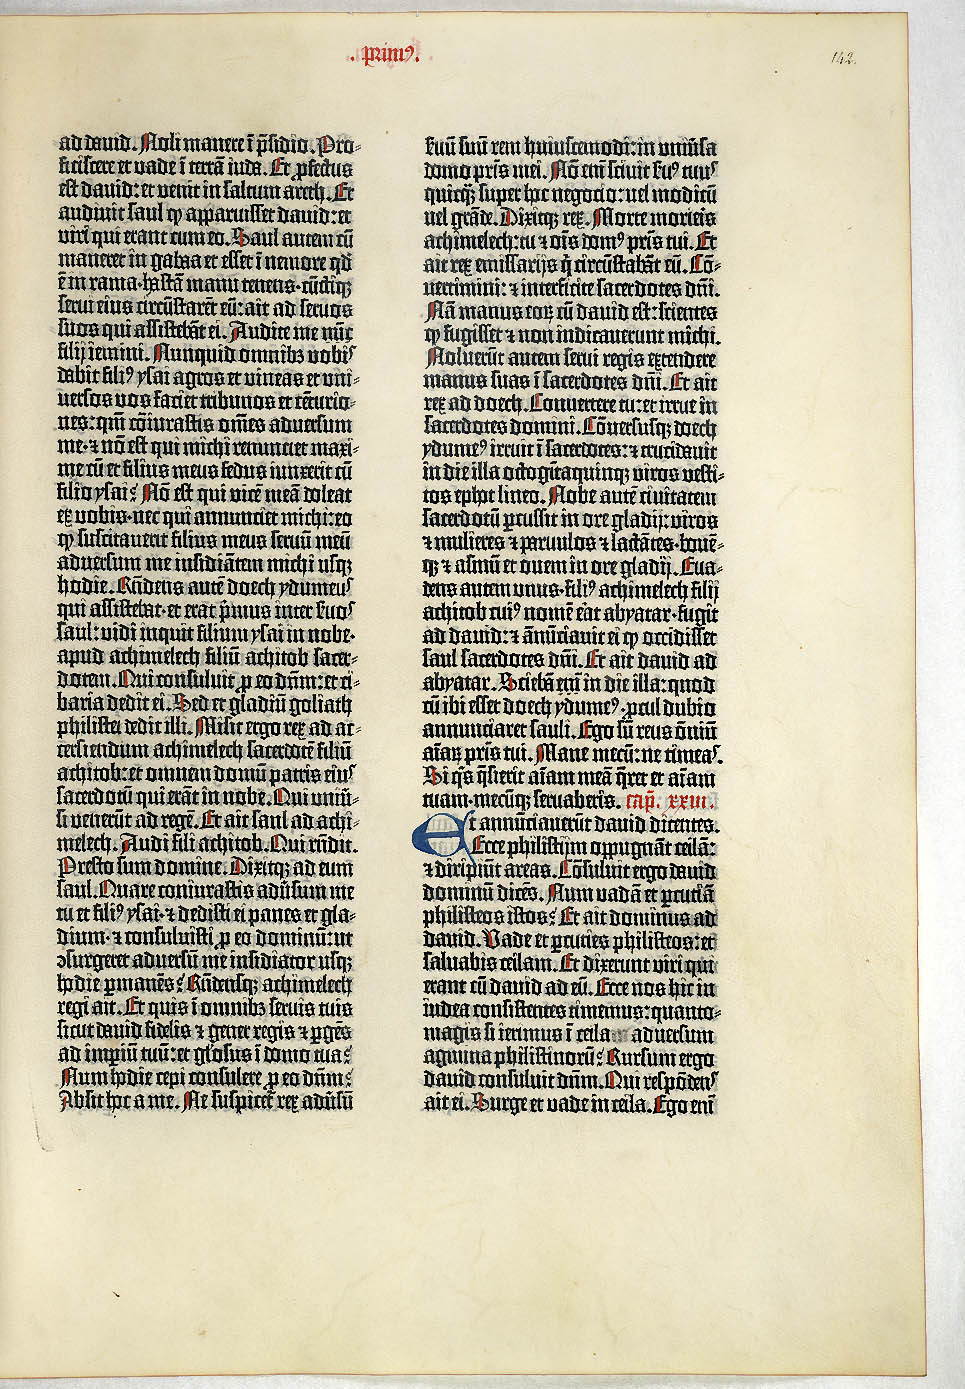 . primꝰ.
142.
ad dauid. Noli manere ī p̄sidio. Pro-
ficiscere et vade ī terrā iuda. Et ꝓfectus
est dauid: et venit in saltum areth. Et
audiuit saul ꝙ apparuisset dauid: et
viri qui erant cum eo. Saul autem cū
maneret in gabaa et esset ī nemore qd̄
ē in rama·hastā manu tenens·cūctiqꝫ
serui eius circūstarēt eū: ait ad seruos
suos qui assistebāt ei. Audite me nūc
filij iemini. Nunquid omnibꝫ vobiꝭ
dabit filiꝰ ysai agros et vineas et vni-
uersos vos faciet tribunos et cēturio-
nes: qm̄ cōiurastis om̄es aduersum
me·⁊ nō est qui michi renunciet maxi-
me cū et filius meus fedus iunxerit cū
filio ysai? Nō est qui vicē meā doleat
ex vobis·nec qui annunciet michi: eo
ꝙ suscitauerit filius meus seruū meū
aduersum me insidiātem michi usqꝫ
hodie. Rn̄dens autē doech ydumeus
qui assistebat·et erat p̄mus inter s̄uos
saul: vidi inquit filium ysai in nobe·
apud achimelech filiū achitob sacer-
dotem. Qui consuluit ꝓ eo dn̄m: et ci-
baria dedit ei. Sed et gladiū goliath
philistei dedit illi. Misit ergo rex ad ac-
cersiendum achimelech sacerdotē filiū
achitob: et omnem domū patris eius
sacerdotū qui erāt in nobe. Qui vniū̄-
si venerūt ad regē. Et ait saul ad achi-
melech. Audi fili achitob. Qui rn̄dit.
Presto sum domine. Dixitqꝫ ad eum
saul. Quare coniurastis adūsum me
tu et filiꝰ ysai·⁊ dedisti ei panes et gla-
dium·⁊ consuluisti ꝓ eo dominū: ut
ↄsurgeret aduersū me insidiator usqꝫ
hodie ꝑmanēs? Rn̄densqꝫ achimelech
regi ait. Et quis ī omnibꝫ seruis tuis
sicut dauid fidelis ⁊ gener regis ⁊ ꝑgēs
ad imperiū tuū: et glōsus ī domo tua?
Num hodie cepi consulere ꝓ eo dn̄m?
Absit hoc a me. Ne suspicet᷑ rex adūsū
s̄uū suū rem huiuscemodi: in vniūsa
domo pr̄is mei. Nō em̄ sciuit s̄uꝰ tuus
quicqꝫ super hoc negocio: uel modicū
uel grāde. Dixitqꝫ rex. Morte morieris
achimelech: tu ⁊ om̄is domꝰ pr̄is tui. Et
ait rex emissarijs q̄ circūstabāt eū. Cō-
uertimini: ⁊ interficite sacerdotes dn̄i.
Nā manus eoꝝ cū dauid est: scientes
ꝙ fugisset ⁊ non indicauerunt michi.
Noluerūt autem serui regis extendere
manus suas ī sacerdotes dn̄i. Et ait
rex ad doech. Conuertere tu: et irrue in
sacerdotes domini. Cōuersusqꝫ doech
ydumeꝰ irruit ī sacerdotes: ⁊ trucidauit
in die illa octogītaquinqꝫ viros vesti-
tos ephot lineo. Nobe autē ciuitatem
sacerdotū ꝑcussit in ore gladij: viros
⁊ mulieres ⁊ paruulos ⁊ lactātes·bouē-
qꝫ ⁊ asinū et ouem in ore gladij. Eua-
dens autem vnus·filiꝰ achimelech filij
achitob cuiꝰ nomē erat abyatar·fugit
ad dauid: ⁊ ānūciauit ei ꝙ occidisset
saul sacerdotes dn̄i. Et ait dauid ad
abyatar. Sciebā em̄ in die illa: quod
cū ibi esset doech ydumeꝰ·ꝓcul dubio
annunciaret sauli. Ego sū reus om̄niū
aīaꝝ pr̄is tui. Mane mecū: ne timeas.
Si q̄s q̄sierit aīam meā q̄ret et aīam
tuam·mecūqꝫ seruaberis. Cap̄. XXIII.
Et annūciauerūt dauid dicentes.
Ecce philistijm oppugnāt ceilā:
⁊ diripiūt areas. Cōsuluit ergo dauid
dominū dicēs. Num vadā et ꝑcutiā
philisteos istos? Et ait dominus ad
dauid. Vade et ꝑcuties philisteos: et
saluabis ceilam. Et dixerunt viri qui
erant cū dauid ad eū. Ecce nos hic in
iudea consistentes timemus: quanto-
magis si ierimus ī ceila aduersum
agmina philistinorū? Rursum ergo
dauid consuluit dn̄m. Qui respōdens
ait ei. Surge et vade in ceila. Ego enī